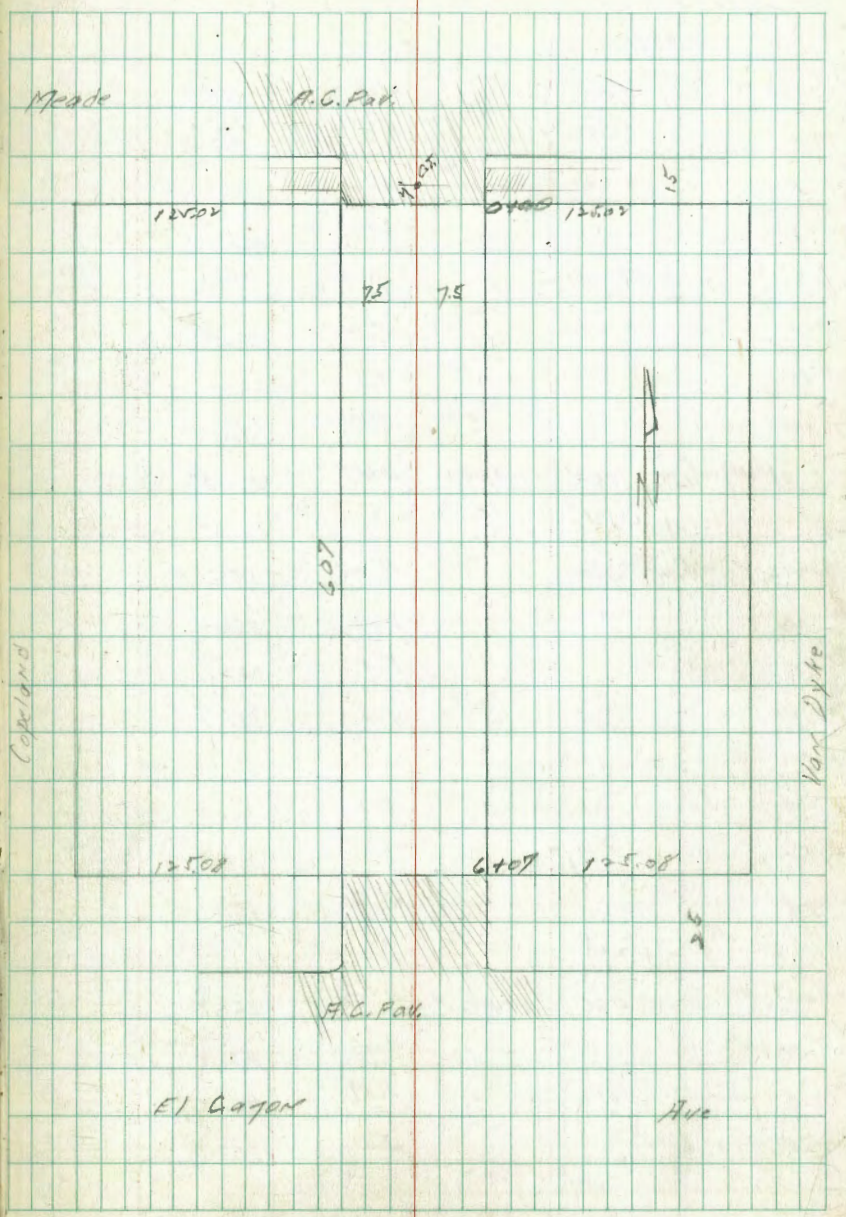 Meade
A.C. Pav.
15
125.02
0+00
125.02
7.5
7.5
N
607
Copeland
Van Dyke
125.08
6+07
125.08
25
A.C. Pav.
El Cajon
Ave